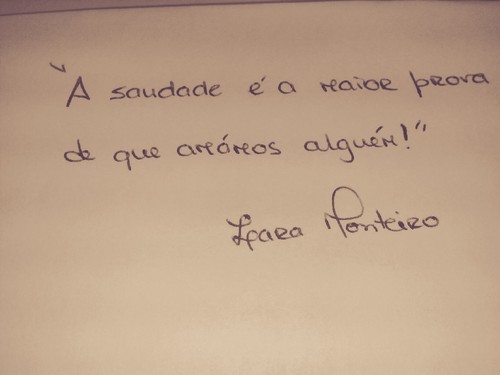 "A saudade é a maior prova
de que amámos alguém!"
Iara Monteiro